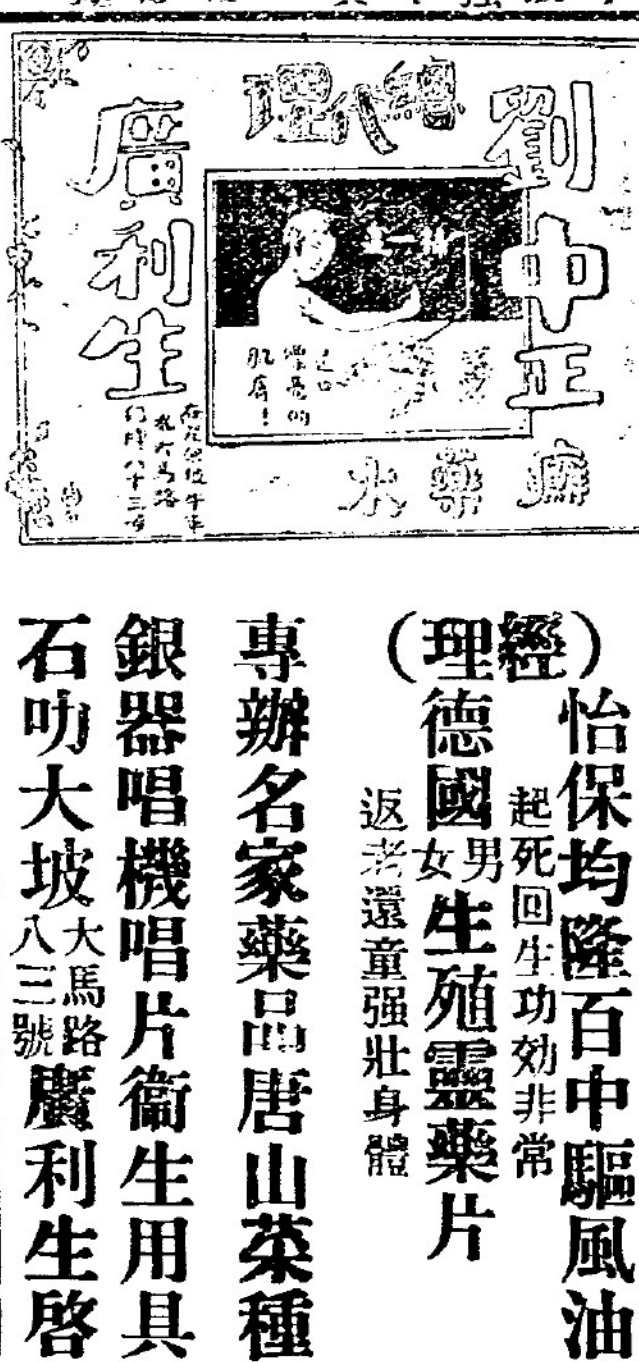 劉中正
總代理
廣利生
癬藥水
肌膚！
八十三號
(經理)
怡保均隆百中驅風油
起死回生功効非常
德國男女生殖靈藥片
返老還童强壯身體
專辦名家藥品唐山菜種
銀器唱機唱片衞生用具
石叻大坡大馬路八三號廣利生啓